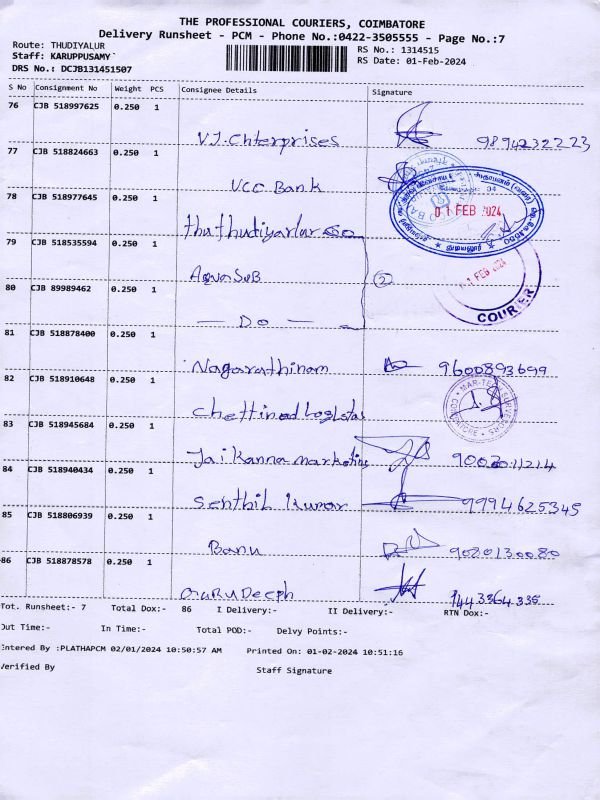 THE PROFESSIONAL COURIERS, COIMBATORE
Delivery Runsheet - PCM - Phone No.:0422-3505555 - Page No.:7
Route: THUDIYALUR
RS No.: 1314515
Staff: KARUPPUSAMY`
RS Date: 01-Feb-2024
DRS No.: DCJB131451507
S No Consignment No Weight PCS Consignee Details Signature
76 CJB 518997625 0.250 1
V.J. Chterprises 9894232223
77 CJB 518824663 0.250 1
UCC Bank
78 CJB 518977645 0.250 1
01 FEB 2024
79 CJB 518535594 0.250 1
AquaSuB 2
FEB 2024
80 CJB 89989462 0.250 1
COURIER
— Do —
81 CJB 518878400 0.250 1
Nagarathinam 9600893699
82 CJB 518910648 0.250 1
MAR-TECH SURVEYORS
Chettinad Logistas
83 CJB 518945684 0.250 1
Jai Kanna marketing
84 CJB 518940434 0.250 1
Senthil Kumar 9994625345
85 CJB 518806939 0.250 1
Banu 9080130080
86 CJB 518878578 0.250 1
GuRuDeeph
Tot. Runsheet:- 7 Total Dox:- 86 I Delivery:- II Delivery:- RTN Dox:-
Out Time:- In Time:- Total POD:- Delvy Points:-
Entered By :PLATHAPCM 02/01/2024 10:50:57 AM Printed On: 01-02-2024 10:51:16
Verified By Staff Signature